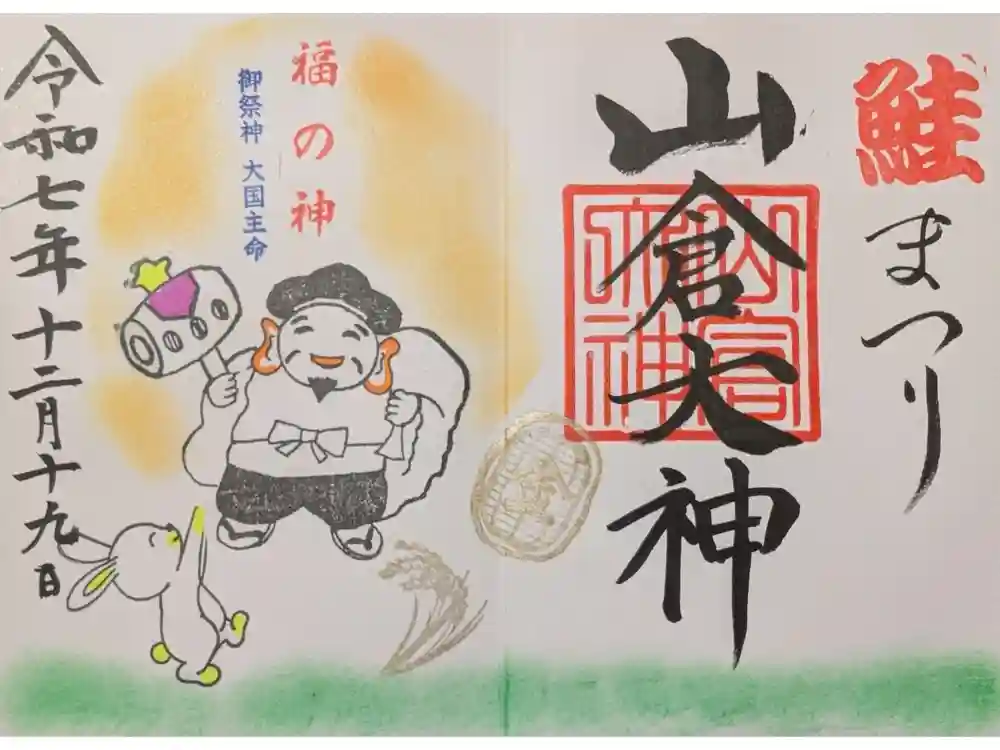 鮭まつり
山倉大神
福の神
御祭神 大国主命
令和七年十二月十九日